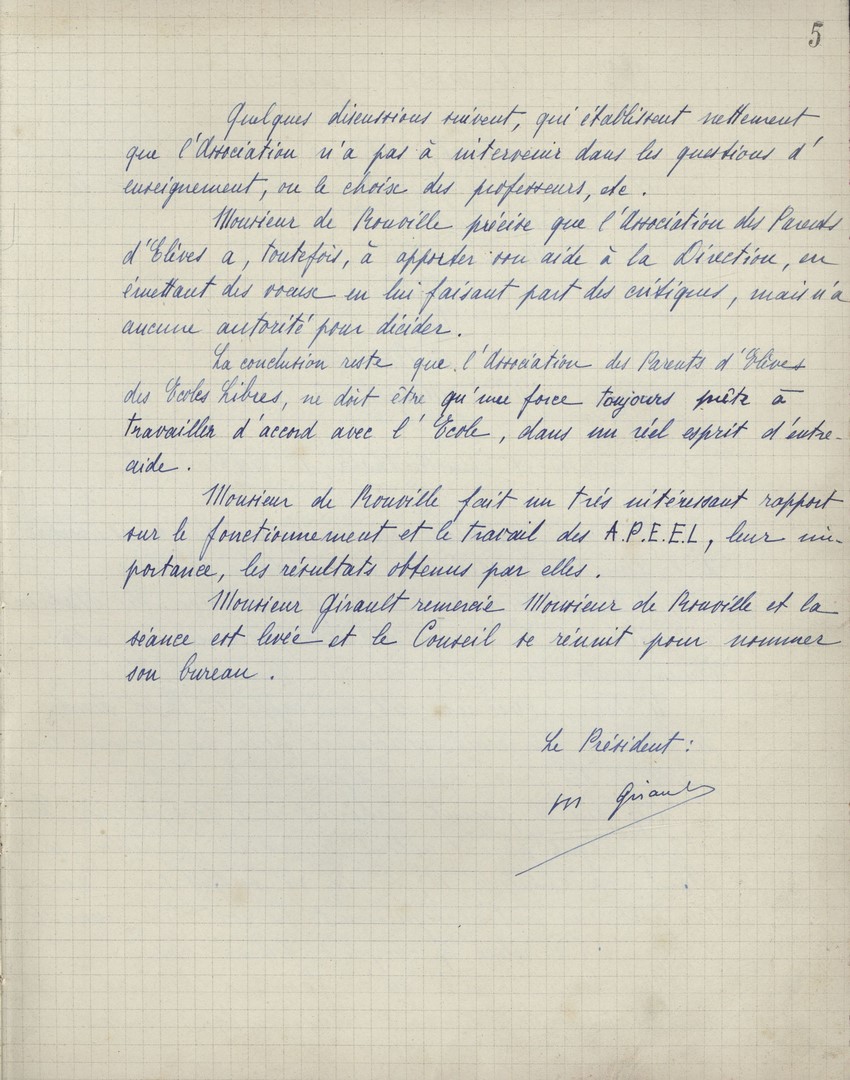 5
Quelques discussions suivent, qui établissent nettement
que l'Association n'a pas à intervenir dans les questions d'
enseignement, ou le choix des professeurs, etc.
Monsieur de Rouville précise que l'Association des Parents
d'Elèves a, toutefois, à apporter son aide à la Direction, en
émettant des voeux en lui faisant part des critiques, mais n'a
aucune autorité pour décider.
La conclusion reste que l'Association des Parents d'Elèves
des Ecoles Libres, ne doit être qu'une force toujours prête à
travailler d'accord avec l'Ecole, dans un réel esprit d'entre-
aide.
Monsieur de Rouville fait un trés intéressant rapport
sur le fonctionnement et le travail des A.P.E.E.L, leur im-
portance, les résultats obtenus par elles.
Monsieur Girault remercie Monsieur de Rouville et la
séance est levée et le Conseil se réunit pour nommer
son bureau.
Le Président:
M Girault